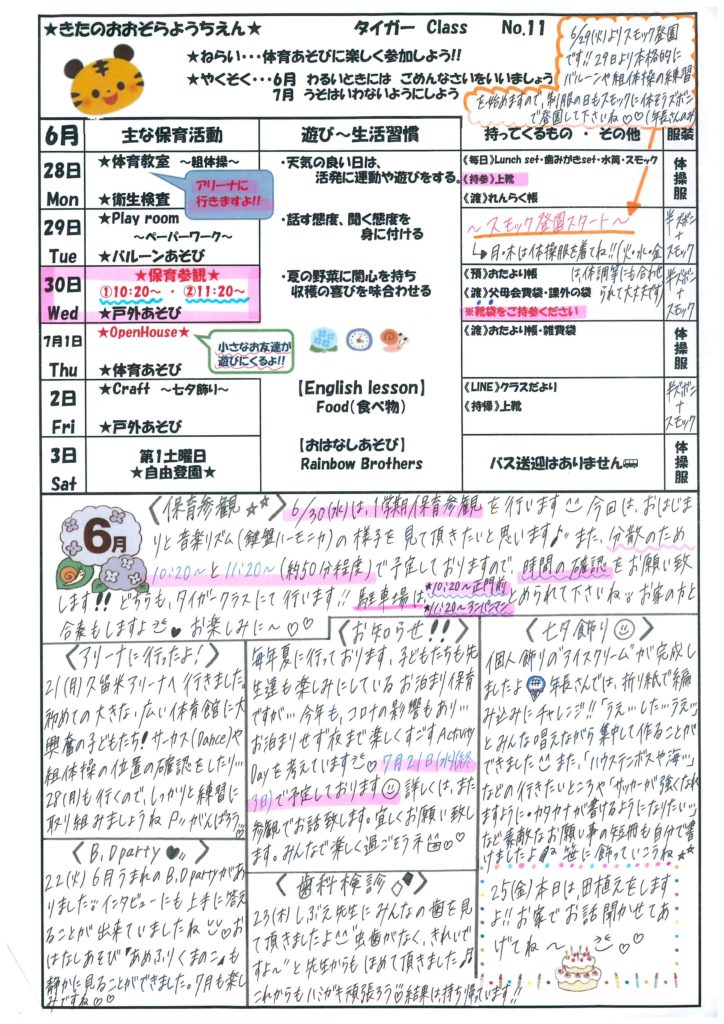 ★きたのおおぞらようちえん★
タイガー Class No.11
★ねらい・・・体育あそびに楽しく参加しよう!!
★やくそく・・・6月 わるいときには ごめんなさいをいいましょう
7月 うそはいわないようにしよう
6/29(火)よりスモック登園
です!! 29日より本格的に
バルーンや組体操の練習
を始めますので、制服の日もスモックに体そうズボン
で登園して下さいね♡♡(年長さんのみ)
6月 主な保育活動 遊び～生活習慣 持ってくるもの・その他 服装
28日
Mon
★体育教室 ～組体操～
★衛生検査
アリーナに
行きますよ!!
・天気の良い日は、
活発に運動や遊びをする。
《毎日》Lunch set・歯みがきset・水筒・スモック
《持参》上靴
《渡》れんらく帳
体操服
29日
Tue
★Play room
～ペーパーワーク～
★バルーンあそび
・話す態度、聞く態度を
身に付ける
～スモック登園スタート～
↳月・木は体操服を着てね!!(火・水・金
は体調等にも合わせ
られて大丈夫です)
半ズボン
+
スモック
30日
Wed
★保育参観★
①10:20～ ・ ②11:20～
★戸外あそび
・夏の野菜に関心を持ち
収穫の喜びを味合わせる
《預》おたより帳
《渡》父母会費袋・課外の袋
※靴袋をご持参ください
半ズボン
+
スモック
7月1日
Thu
★OpenHouse★
★体育あそび
小さなお友達が
遊びにくるよ!!
《渡》おたより帳・雑費袋
体操服
2日
Fri
★Craft ～七夕飾り～
★戸外あそび
【English lesson】
Food(食べ物)
《LINE》クラスだより
《持帰》上靴
半ズボン
+
スモック
3日
Sat
第1土曜日
★自由登園★
【おはなしあそび】
Rainbow Brothers
バス送迎はありません
体操服
6月
〈保育参観★★〉6/30(水)は、1学期保育参観を行います 今回は、おはじま
りと音楽リズム(鍵盤ハーモニカ)の様子を見て頂きたいと思います♪また、分散のため
10:20～と11:20～(約50分程度)で予定しておりますので、時間の確認をお願い致
します!! どちらも、タイガークラスにて行います!! 駐車場は、
★10:20～正門前
★11:20～
とめられて下さいね。お家の方と
合奏もしますよ♥お楽しみに～♡♡
〈アリーナに行ったよ!〉
21(月)久留米アリーナへ行きました。
初めての大きな、広い体育館に大
興奮の子どもたち! サーカス(Dance)や
組体操の位置の確認をしたり…
28(月)も行くので、しっかりと練習に
取り組みましょうねPッがんばろう♡
〈B.D party♥〉
22(火)6月うまれのB.D partyがあ
りました。インタビューにも上手に答え
ることが出来ていましたね♡お
はなしあそび『あめふりくまのこ』も
静かに見ることができました。7月も楽し
みですね♡♡
〈お知らせ!!〉
毎年夏に行っております、子どもたちも先
生達も楽しみにしているお泊まり保育
ですが…今年も、コロナの影響もあり…
お泊まりせず夜まで楽しくすごすActivity
Dayを考えています♡7月21日(水)(終
3日)で予定しております 詳しくは、また
参観でお話致します。宜しくお願い致し
ます。みんなで楽しく過ごそうネ♡♡
〈歯科検診〉
23(木)しぶえ先生にみんなの歯を見
て頂きましたよ"虫歯がなく、きれいで
すよ～"と先生からもほめて頂きました♪
これからもハミガキ頑張ろう♡結果は持ち帰っています!!
〈七夕飾り〉
個人飾りの"アイスクリーム"が完成し
ましたよ 年長さんでは、折り紙で編
み込みにチャレンジ!!「うえ…した…うえ…」
とみんな唱えながら集中して作ることが
できました また、「ハウステンボスや海…」
などの行きたいところや「サッカーが強くなれ
ますように・カタカナが書けるようになりたい…」
など素敵なお願い事の短冊も自分で書
けましたよ♪笹に飾っていこうね★★
25(金)本日は、田植えをします
よ!! お家でお話聞かせてあ
げてね～ ♡♡